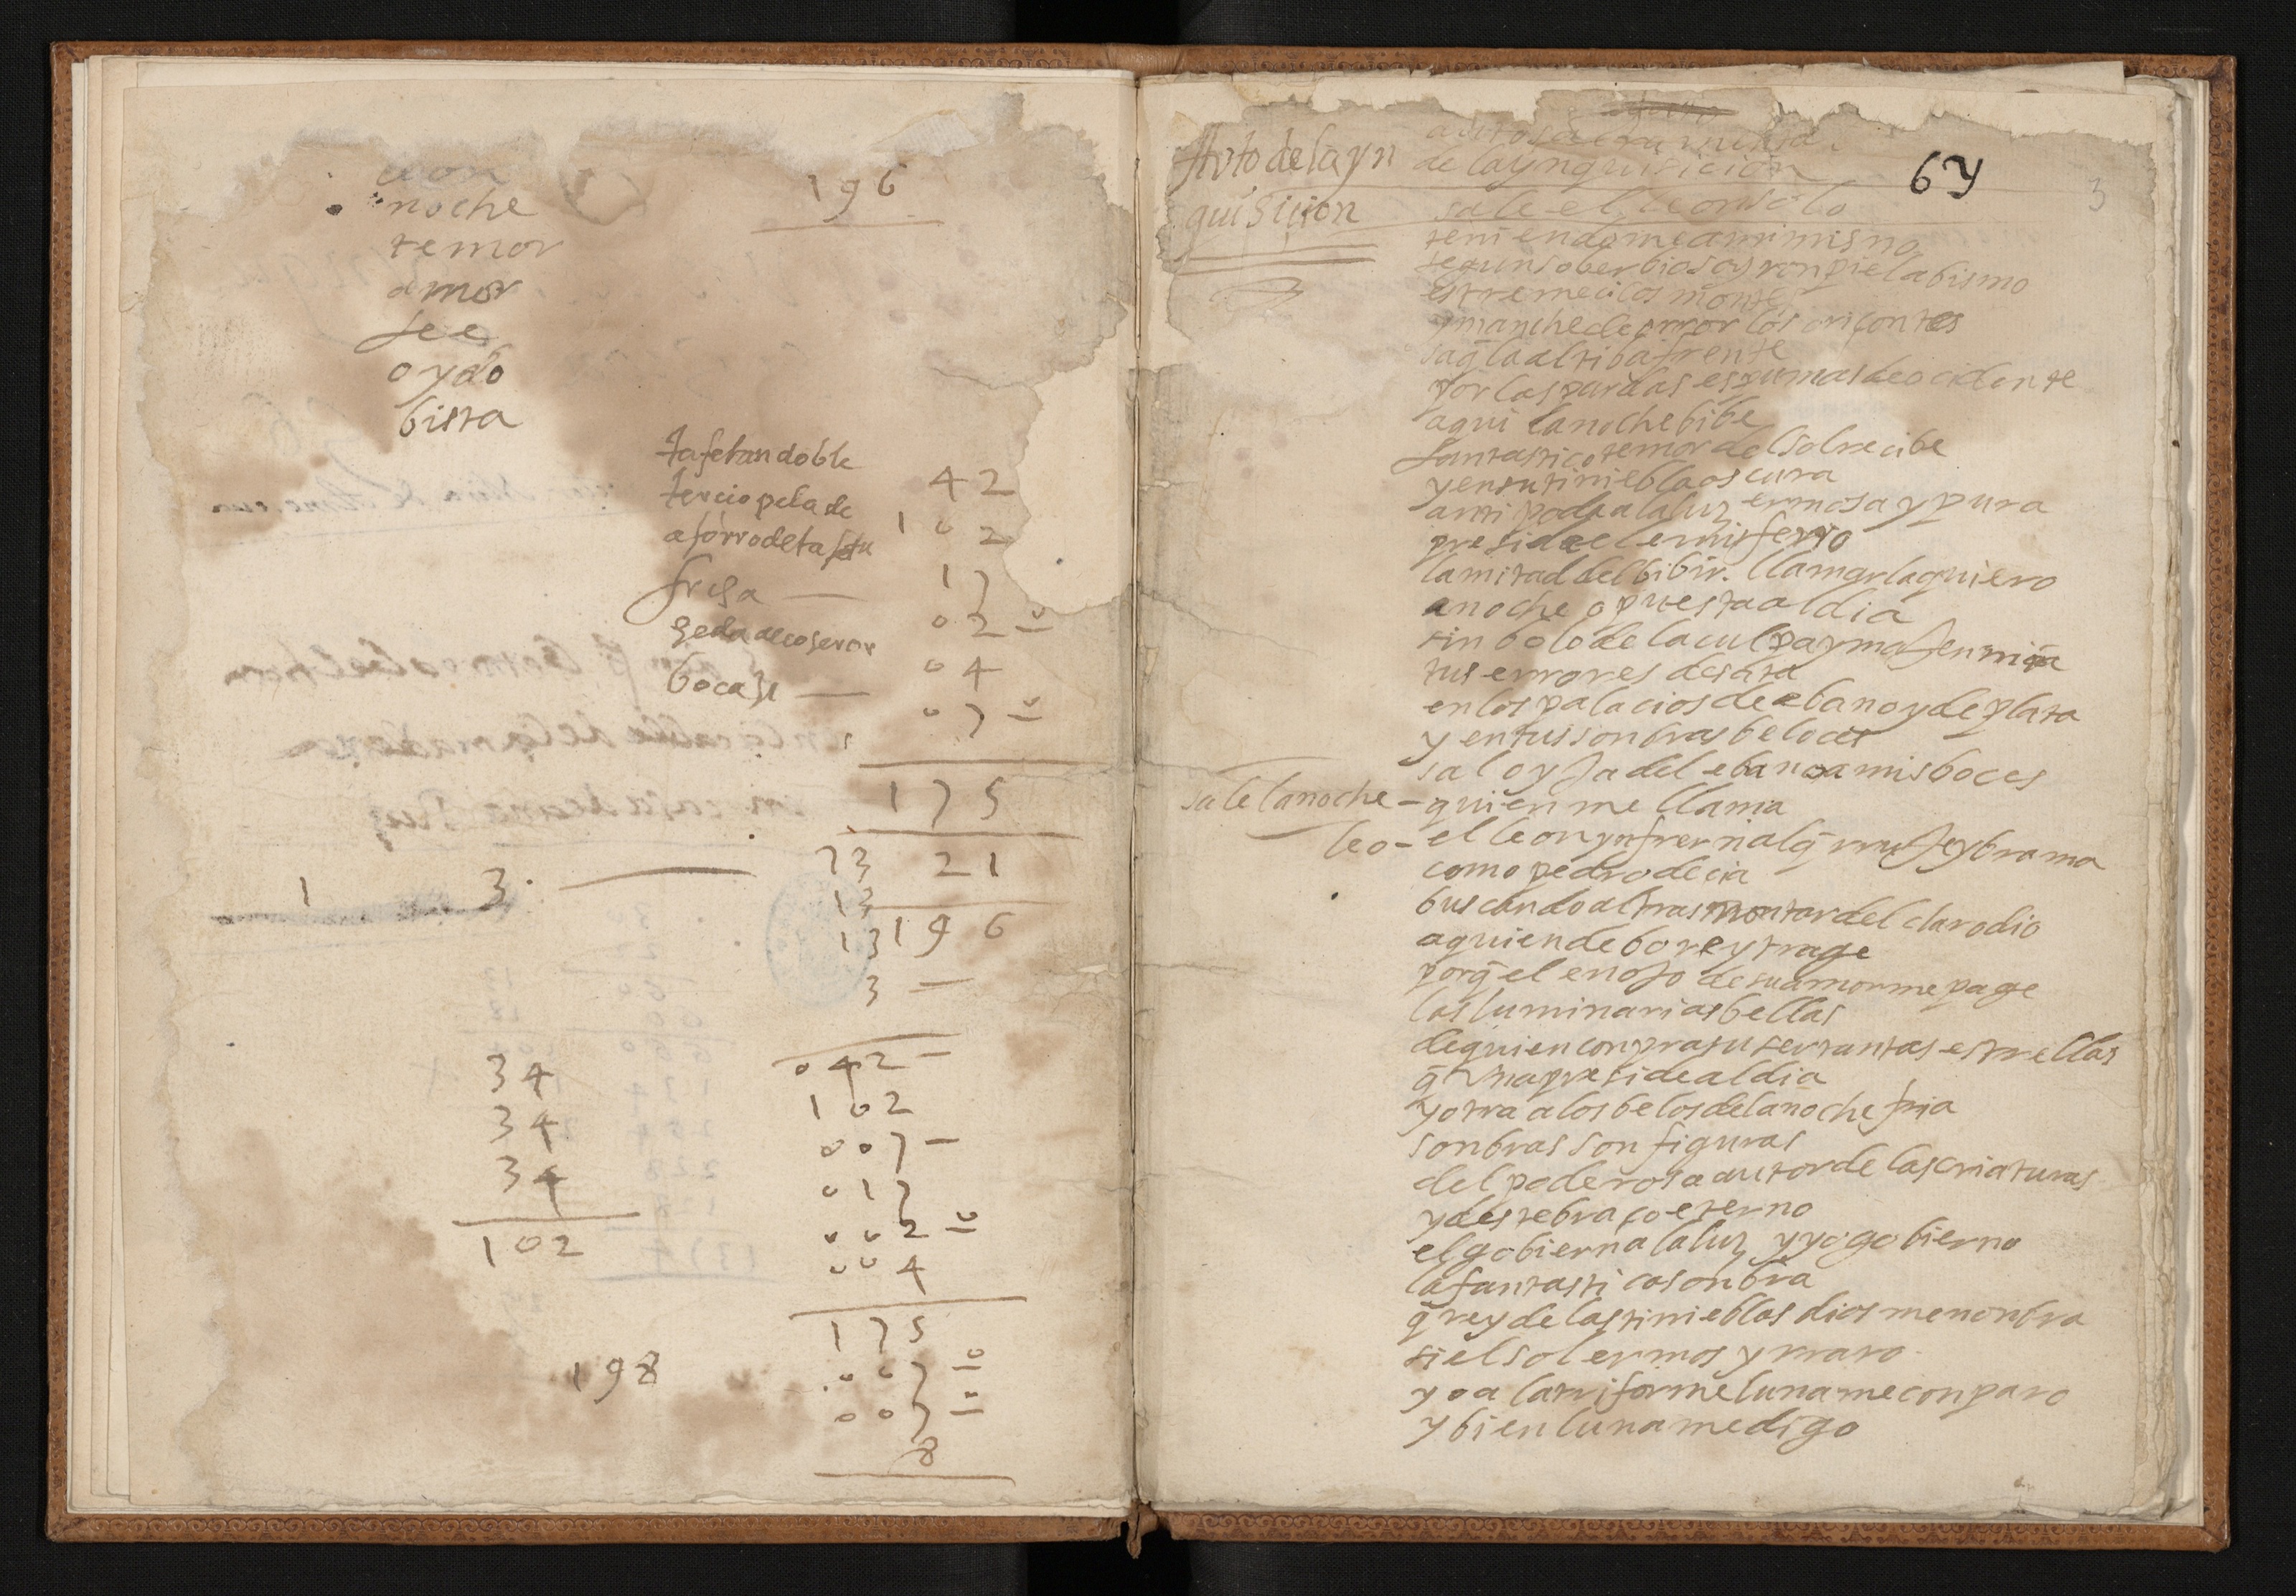 leon
noche
temor
amor
fee
oydo
bista
196
tafetan doble 42
terciopela de 102
aforro de tafetu 17
fresa — 02 υ
seda de coseror 04
bocasi — 07 υ
175
73 21
13
13 196
3 —
1 3 —
34
34
34
102
042 —
102
007 —
017
002 υ
004
175
007 υ
007 υ
8
198
Avto de la yn
quisicion
de la ynquisicion
67
3
sale el leon solo
teniendome a mi mismo
segun soberbio soy ronpi el abismo
estremeci los montes
y manche de orror los oriçontes
saq̃ la altiba frente
por las pardas espumas de ocidente
aqui la noche bibe
fantastico temor del sol recibe
y en su tiniebla oscura
antipoda a la luz ermosa y pura
preside el emisferio
la mitad del bibir. llamarla quiero
a noche opuesta al dia
sinbolo de la culpa y maʃen mia
tus errores desata
en los palacios de ebano y de plata
y en tus sonbras beloces
sal oyʃa del ebano a mis boces
sale la noche – quien me llama
leo – el leon ynfernal q̃ ruʃe y brama
como pedro decia
buscando al trasmontar del claro dia
a quien deborey trage
porq̃ el enoʃo de su amor me page
las luminarias bellas
de quien conpra su ser tantas estrellas
q̃ una preside al dia
y otra a los belos de la noche fria
sonbras son figuras
del poderosa autor de las criaturas
y deste braço eterno
el gobierna la luz y yo gobierno
la fantastica sonbra
q̃ rey de las tinieblas dios me nonbra
si el sol ermos y raro
yo a la triforme luna me conparo
y bien luna me digo